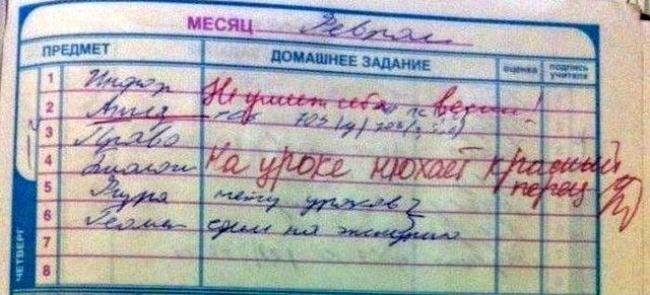 МЕСЯЦ Феврал
ПРЕДМЕТ ДОМАШНЕЕ ЗАДАНИЕ оценка подпись учителя
1 Инфор Не умеет себя вести!
2 Англ
3 Право
4 Биолог На уроке нюхает красный перец
5 Физра нету уроков
6 Геомет
7
8
ЧЕТВЕРГ